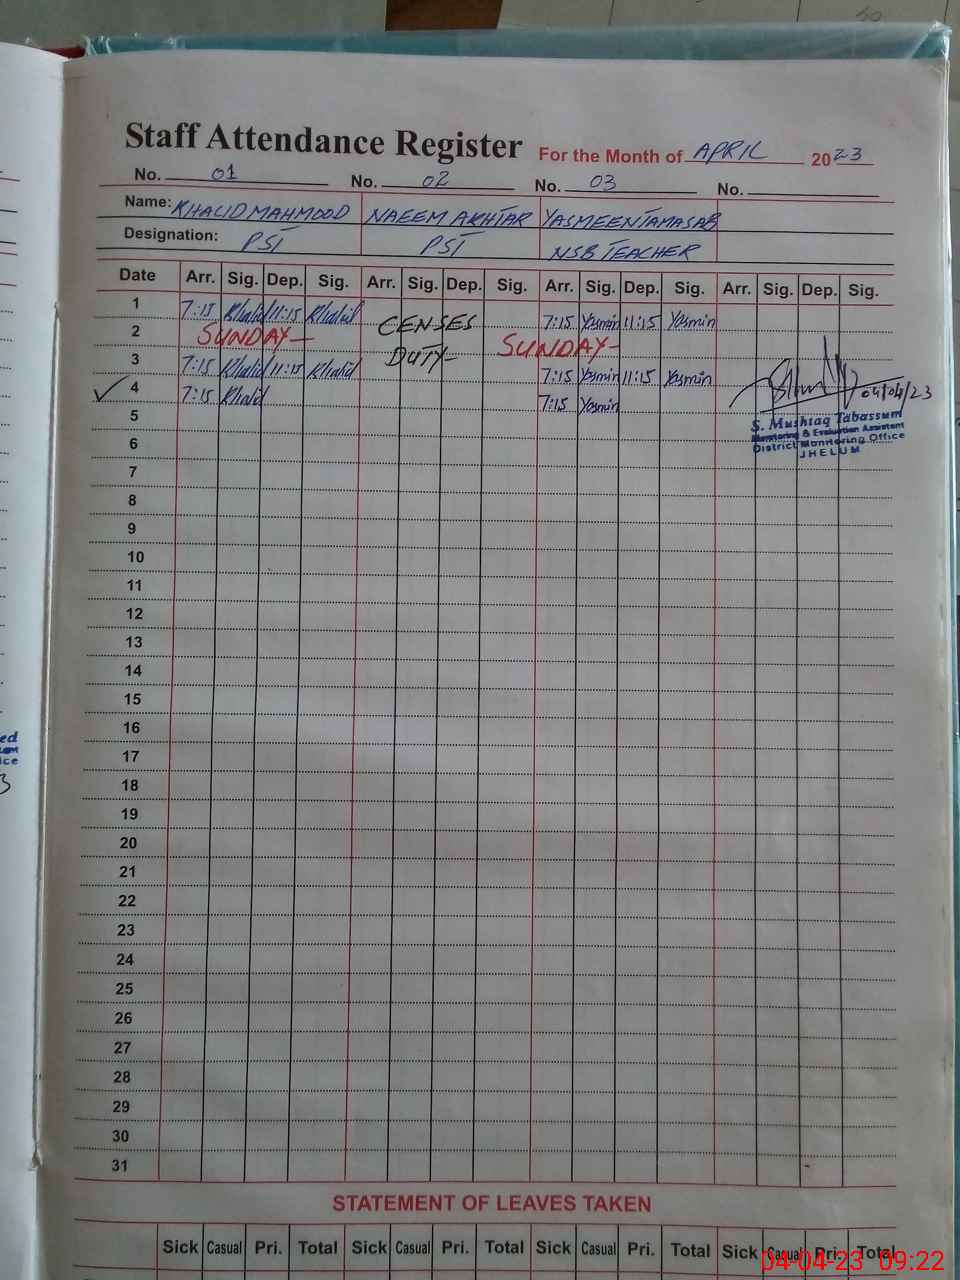 Staff Attendance Register For the Month of APRIL 2023
No. 01 No. 02 No. 03 No.
Name: KHALID MAHMOOD NAEEM AKHTAR YASMEEN TAMASAB
Designation: PST PST NSB TEACHER
Date Arr. Sig. Dep. Sig. Arr. Sig. Dep. Sig. Arr. Sig. Dep. Sig. Arr. Sig. Dep. Sig.
1 7:15 Khalid 11:15 Khalid CENSES 7:15 Yasmin 11:15 Yasmin
2 SUNDAY- SUNDAY-
3 7:15 Khalid 11:15 Khalid DUTY- 7:15 Yasmin 11:15 Yasmin
4 7:15 Khalid 7:15 Yasmin 04/04/23
5 S. Mushtaq Tabassum
Monitoring & Evaluation Assistent
6 District Monitoring Office
JHELUM
7
8
9
10
11
12
13
14
15
16
17
18
19
20
21
22
23
24
25
26
27
28
29
30
31
STATEMENT OF LEAVES TAKEN
Sick Casual Pri. Total Sick Casual Pri. Total Sick Casual Pri. Total Sick Casual Pri. Total
04-04-23 09:22